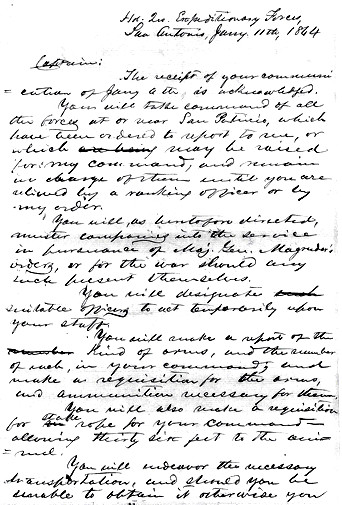 Hd. Qrs. Expeditionary Forces,
San Antonio, Jany. 11th, 1864
Captain:
The receipt of your communi
= cation of Jany 6th is acknowledged.
You will take command of all
the forces at or near San Patricio, which
have been ordered to report to me, or
which are being may be raised
for my command, and remain
in charge of them until you are
relieved by a ranking officer or by
my order.
You will, as heretofore directed,
muster companies into the service
in pursuance of Maj. Gen. Magruder's
orders, or for the war should any
such present themselves.
You will designate such
suitable officers to act temporarily upon
your staff.
You will make a report of the
number kind of arms, and the number
of each, in your command, and
make a requisition for the arms,
and ammunition necessary for them.
You will also make a requisition
for stake rope for your command –
allowing thirty six feet to the ani-
= mal.
You will endeavor the necessary
transportation, and should you be
unable to obtain it otherwise you